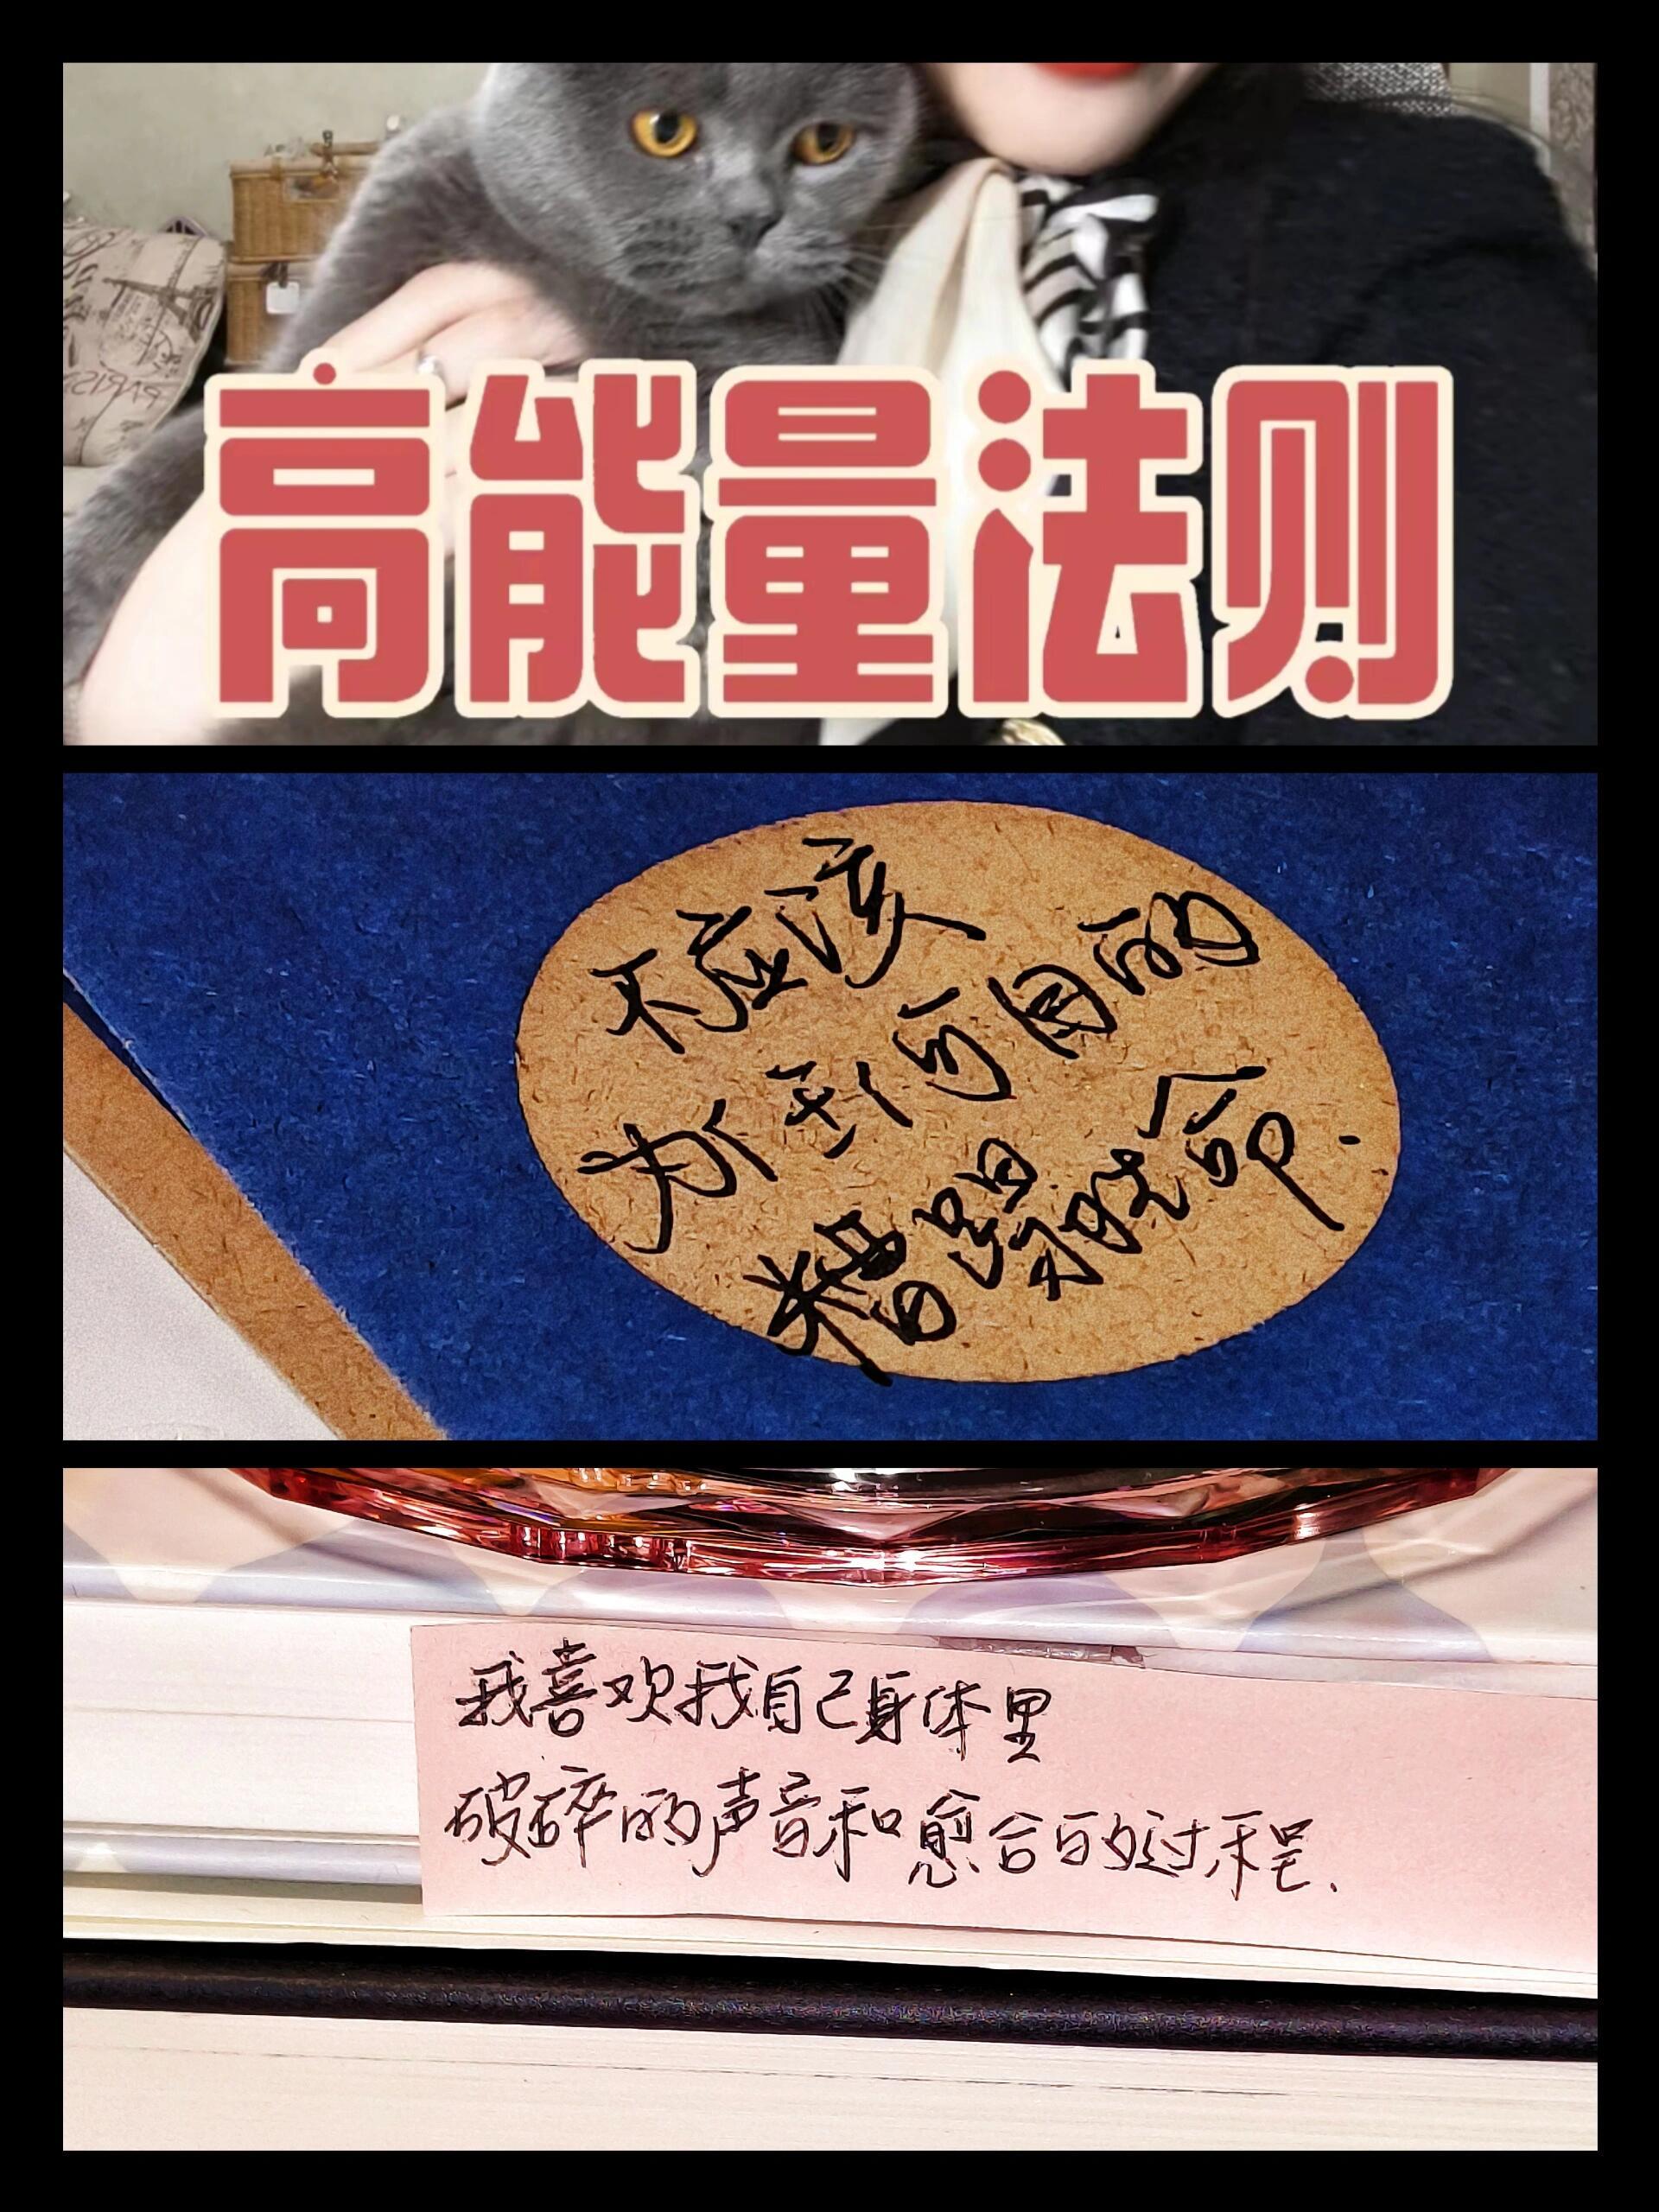 PARIS
高能量法则
不应该
为的
糟蹋性命.
我喜欢我自己身体里
破碎的声音和愈合的过程.